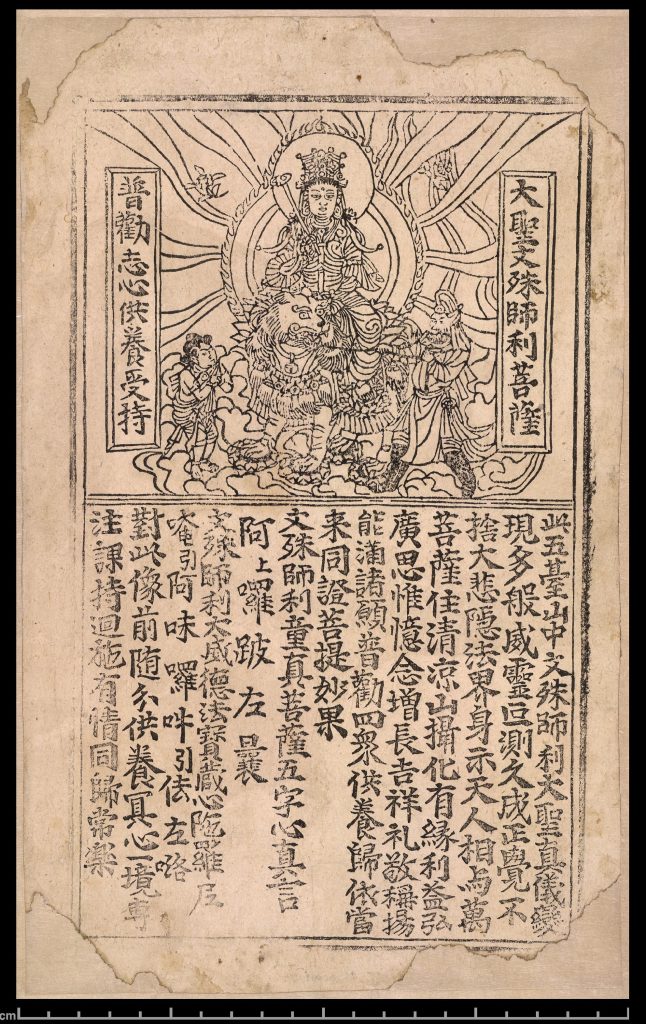 大聖文殊師利菩薩
普勸志心供養受持
此五臺山中文殊師利大聖真儀變
現多般威靈叵測久成正覺不
捨大悲隱法界身示天人相与萬
菩薩住清凉山攝化有緣利益弘
廣思惟憶念增長吉祥礼敬稱揚
能滿諸願普勸四衆供養歸依當
来同證菩提妙果
文殊師利童真菩薩五字心真言
阿上囉跛左曩
文殊師利大威德法寶藏心陁羅尼
唵引阿味囉吽引佉左咯
對此像前随分供養冥心一境專
注課持迴施有情同歸常樂
cm